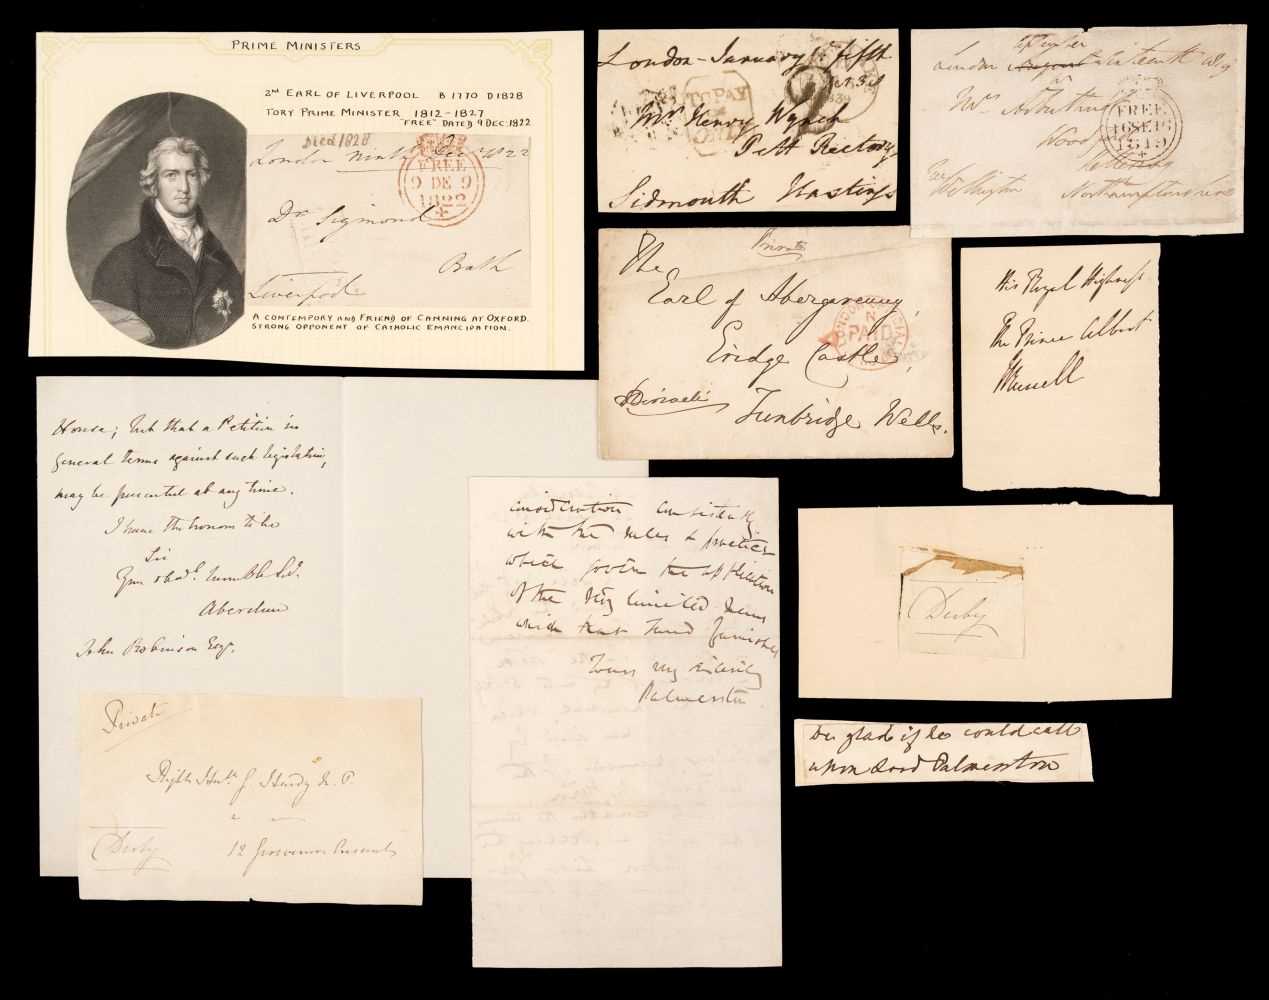 PRIME MINISTERS
2ND EARL OF LIVERPOOL B 1770 D 1828
TORY PRIME MINISTER 1812 - 1827
"FREE" DATED 9 DEC: 1822
Died 1828
London Ninth Decr 1822
FREE
9 DE 9
1822
Dr Sigmond
Bath
Liverpool
A CONTEMPORY AND FRIEND OF CANNING AT OXFORD.
STRONG OPPONENT OF CATHOLIC EMANCIPATION.
London - January fifth
TO PAY
ONLY
Mrs Henry Wynch
Pett Rectory
Sidmouth Hastings
London
Mrs Arbuthnot
FREE
16 SE 16
1819
Wood
Kettering
Wellington Northamptonshire
Private
The
Earl of Abergavenny,
PAID
Eridge Castle,
Tunbridge Wells.
His Royal Highness
The Prince Albert
JRussell
House; but that a Petition in
general terms against such legislation,
may be presented at any time.
I have the honour to be
Sir
Your obedt. humble Sert.
Aberdeen
John Robinson Esqr.
consideration consistently
with the rules & practice
which govern the application
of the very limited means
which that Fund furnishes
Yours my
Palmerston
Derby
be glad if he could call
upon Lord Palmerston
Private
Right Honble J Hardy M.P.
Derby
12 Grosvenor Crescent